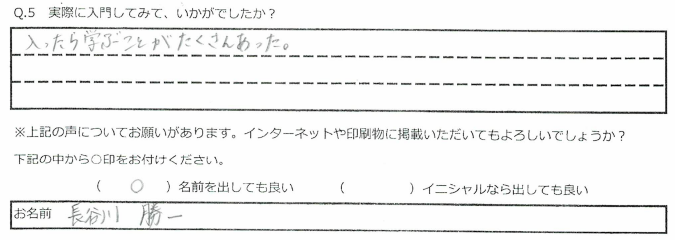 Q.5 実際に入門してみて、いかがでしたか？
入ったら学ぶことがたくさんあった。
※上記の声についてお願いがあります。インターネットや印刷物に掲載いただいてもよろしいでしょうか？
下記の中から○印をお付けください。
（ ○ ）名前を出しても良い （ ）イニシャルなら出しても良い
お名前 長谷川 勝一